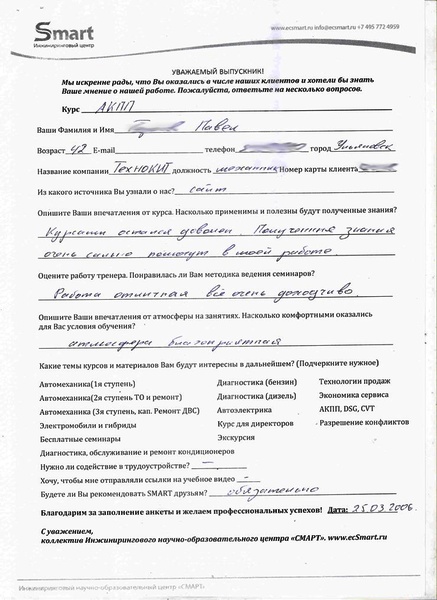 Smart
Инжиниринговый центр
www.ecsmart.ru info@ecsmart.ru +7 495 772 4959
УВАЖАЕМЫЙ ВЫПУСКНИК!
Мы искренне рады, что Вы оказались в числе наших клиентов и хотели бы знать
Ваше мнение о нашей работе. Пожалуйста, ответьте на несколько вопросов.
Курс АКПП
Ваши Фамилия и Имя Павел
Возраст 42 E-mail телефон город Ульяновск
Название компании ТЕХНОКИТ должность механик Номер карты клиента
Из какого источника Вы узнали о нас? сайт
Опишите Ваши впечатления от курса. Насколько применимы и полезны будут полученные знания?
Курсами остался доволен. Полученные знания
очень сильно помогут в моей работе.
Оцените работу тренера. Понравилась ли Вам методика ведения семинаров?
Работа отличная всё очень доходчиво.
Опишите Ваши впечатления от атмосферы на занятиях. Насколько комфортными оказались
для Вас условия обучения?
атмосфера благоприятная
Какие темы курсов и материалов Вам будут интересны в дальнейшем? (Подчеркните нужное)
Автомеханика(1я ступень) Диагностика (бензин) Технологии продаж
Автомеханика(2я ступень ТО и ремонт) Диагностика (дизель) Экономика сервиса
Автомеханика (3я ступень, кап. Ремонт ДВС) Автоэлектрика АКПП, DSG, CVT
Электромобили и гибриды Курс для директоров Разрешение конфликтов
Бесплатные семинары Экскурсия
Диагностика, обслуживание и ремонт кондиционеров
Нужно ли содействие в трудоустройстве? —
Хочу, чтобы мне отправляли ссылки на учебное видео —
Будете ли Вы рекомендовать SMART друзьям? обязательно
Благодарим за заполнение анкеты и желаем профессиональных успехов! Дата: 25.03.2006.
С уважением,
коллектив Инжинирингового научно-образовательного центра «СМАРТ». www.ecSmart.ru
Инжиниринговый научно-образовательный центр «СМАРТ»